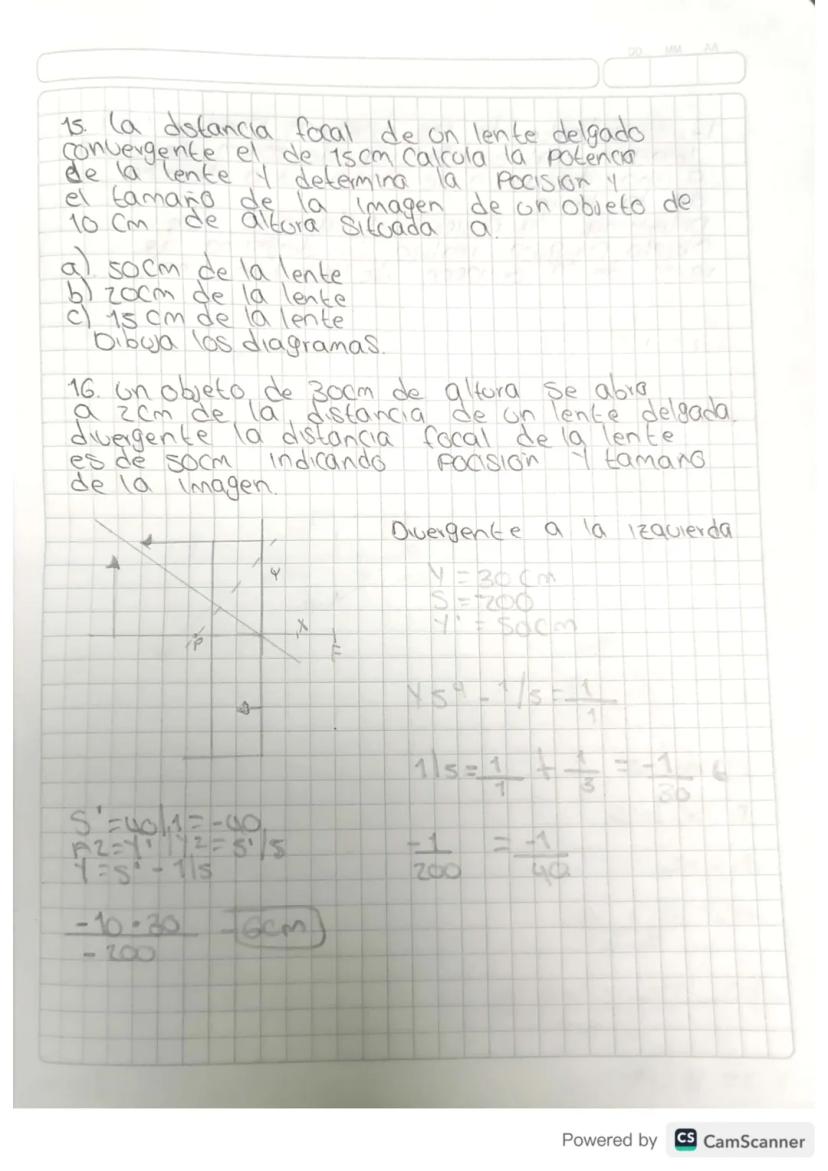 DD MM AA
15. la distancia focal de un lente delgado
convergente el de 15cm calcula la potencia
de la lente y determina la pocision y
el tamaño de la imagen de un objeto de
10 cm de altura situada a.
a) 50cm de la lente
b) 20cm de la lente
c) 15 cm de la lente
Dibuja los diagramas.
16. un objeto de 30cm de altura se abra
a 2cm de la distancia de un lente delgada
divergente la distancia focal de la lente
es de 50cm indicando pocision y tamano
de la imagen.
Divergente a la izquierda
Y = 30 cm
S = -200
Y' = 50cm
Y
X
P
F
1/s = 1/1 + 1/3 = -1/30
S' = 40/1 = -40
Y = S' - 1/s
-1/200 = -1/40
-10·30/-200 = 6cm
Powered by CS CamScanner